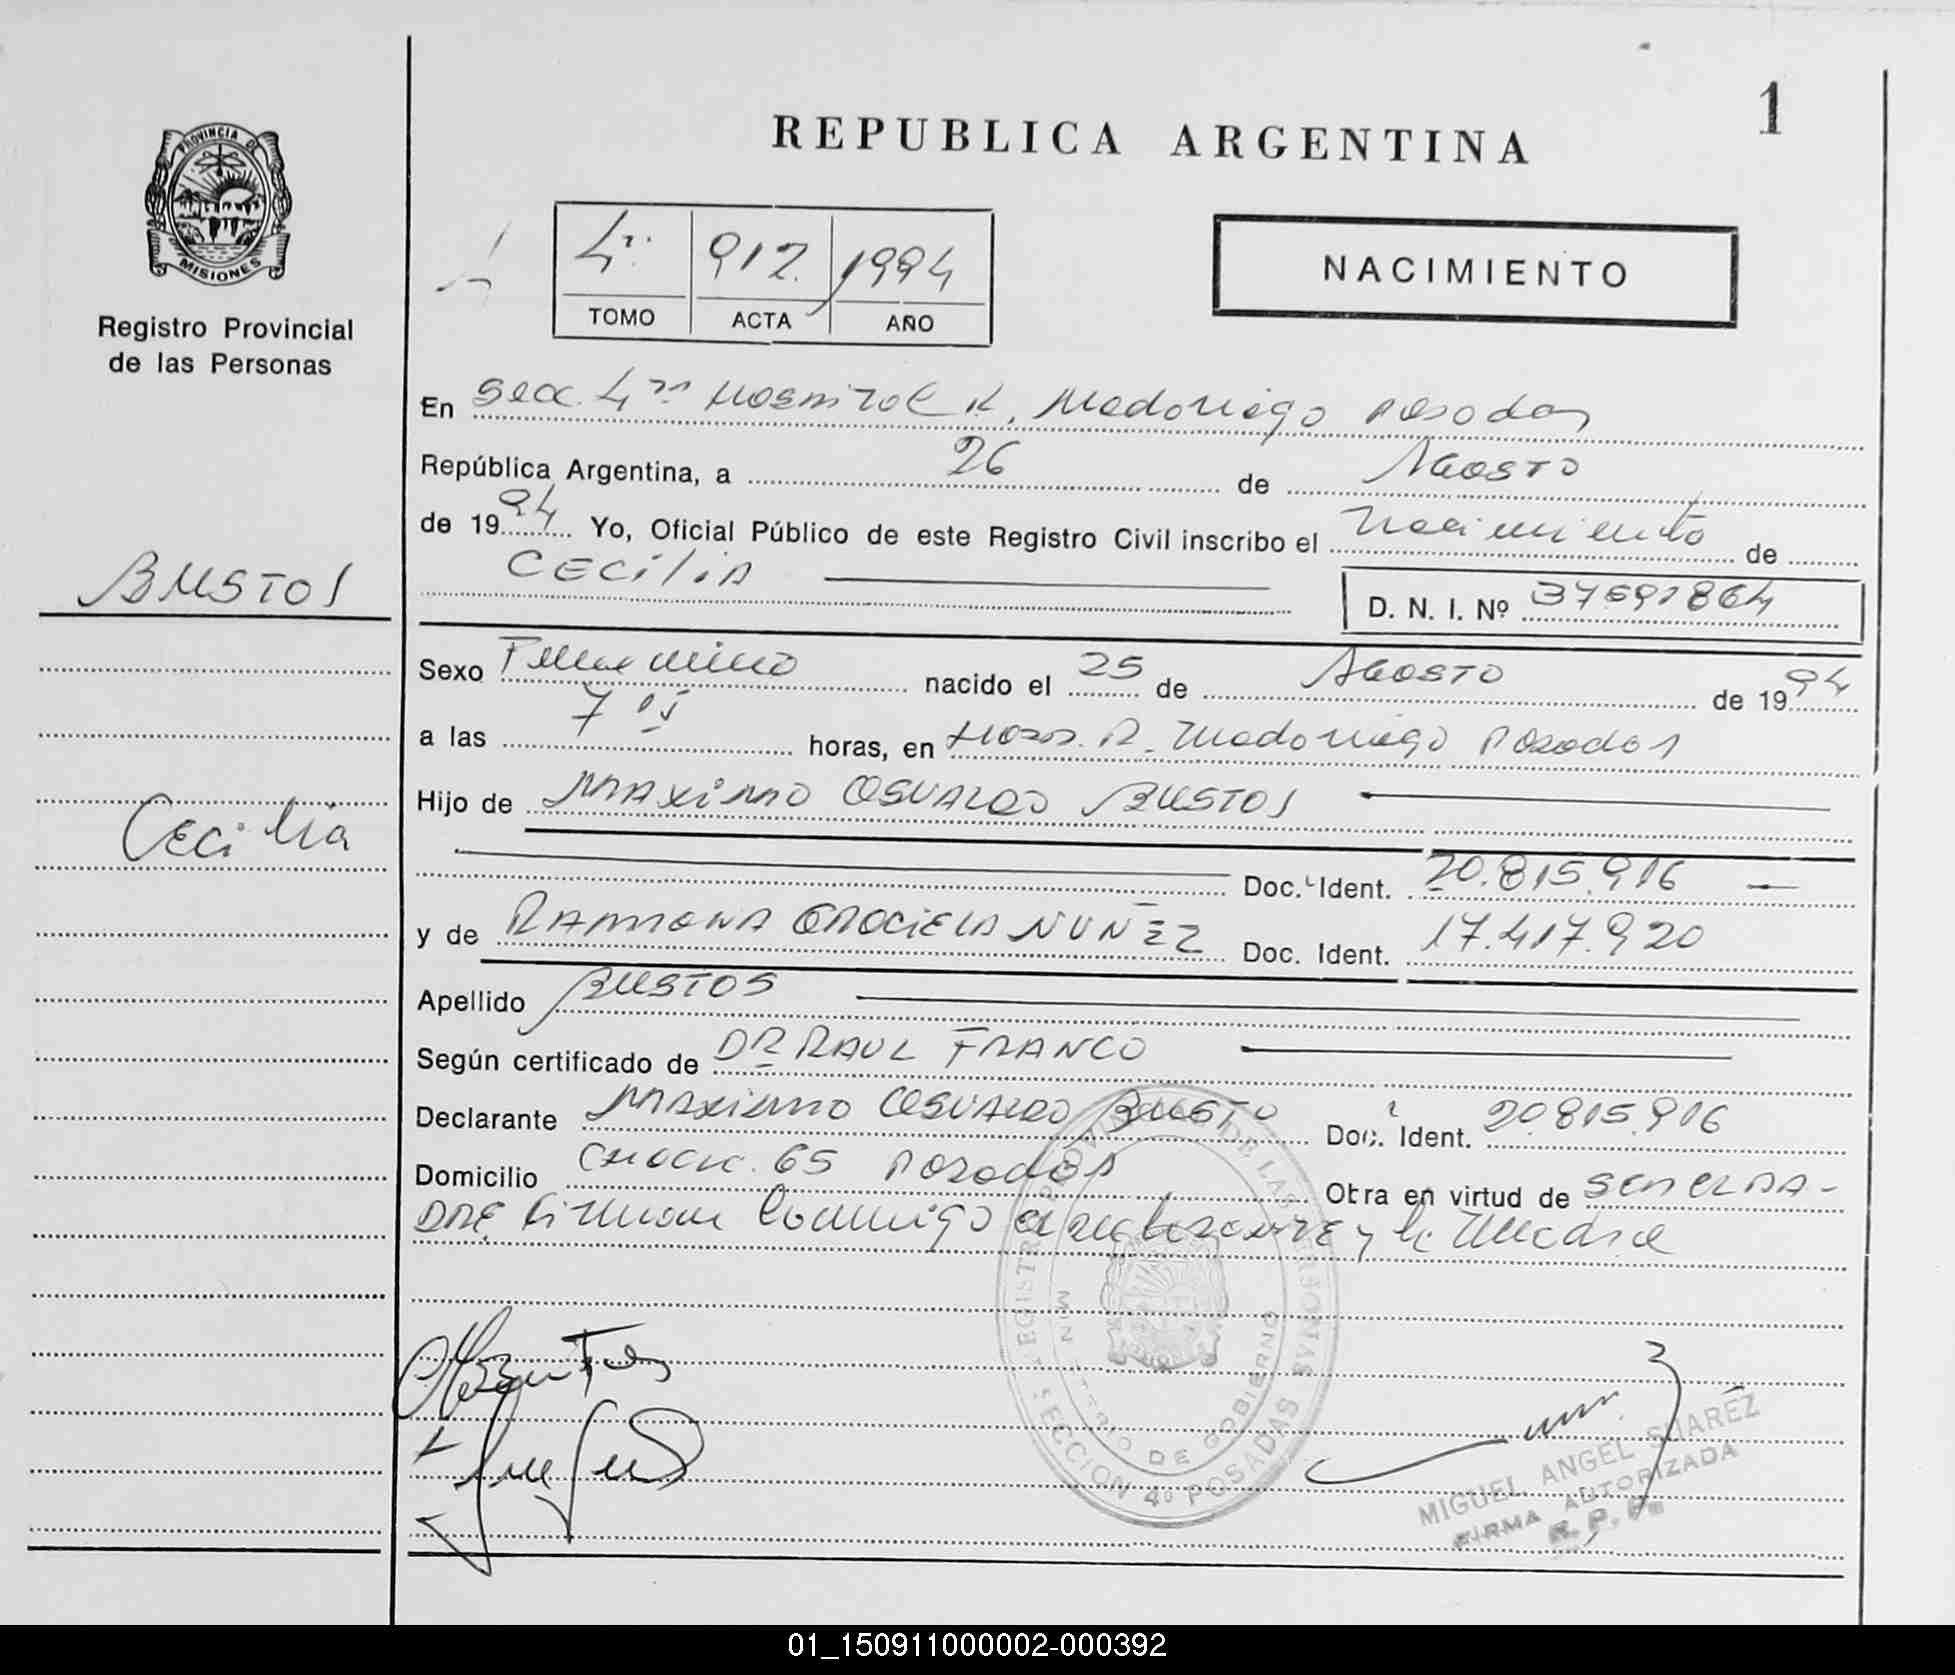 1
REPUBLICA ARGENTINA
PROVINCIA DE
MISIONES
Registro Provincial
de las Personas
4ta 912. 1994
TOMO ACTA AÑO
NACIMIENTO
En Secc. 4ta Hospital R. Madariaga Posadas
República Argentina, a 26 de Agosto
de 1994 Yo, Oficial Público de este Registro Civil inscribo el nacimiento de
BUSTOS
CECiliA
D. N. I. Nº 37591864
Sexo Femenino nacido el 25 de Agosto de 1994
a las 7 horas, en Hosp. R. Madariaga Posadas
Hijo de MAXiMO OSVALDO BUSTOS
Cecilia
Doc. Ident. 20.815.916
y de RAMONA GRACIELA NUÑEZ Doc. Ident. 17.417.920
Apellido BUSTOS
Según certificado de DR RAUL FRANCO
Declarante MAXiMO OSVALDO BUSTO Doc. Ident. 20.815.916
Domicilio CHACR. 65 Posadas Obra en virtud de SER EL PA-
DRE firman conmigo el declarante y la madre
REGISTRO PROVINCIAL DE LAS PERSONAS
MINISTERIO DE GOBIERNO
SECCION 4º POSADAS
MIGUEL ANGEL SUAREZ
FIRMA AUTORIZADA
R. P. P.
01_150911000002-000392